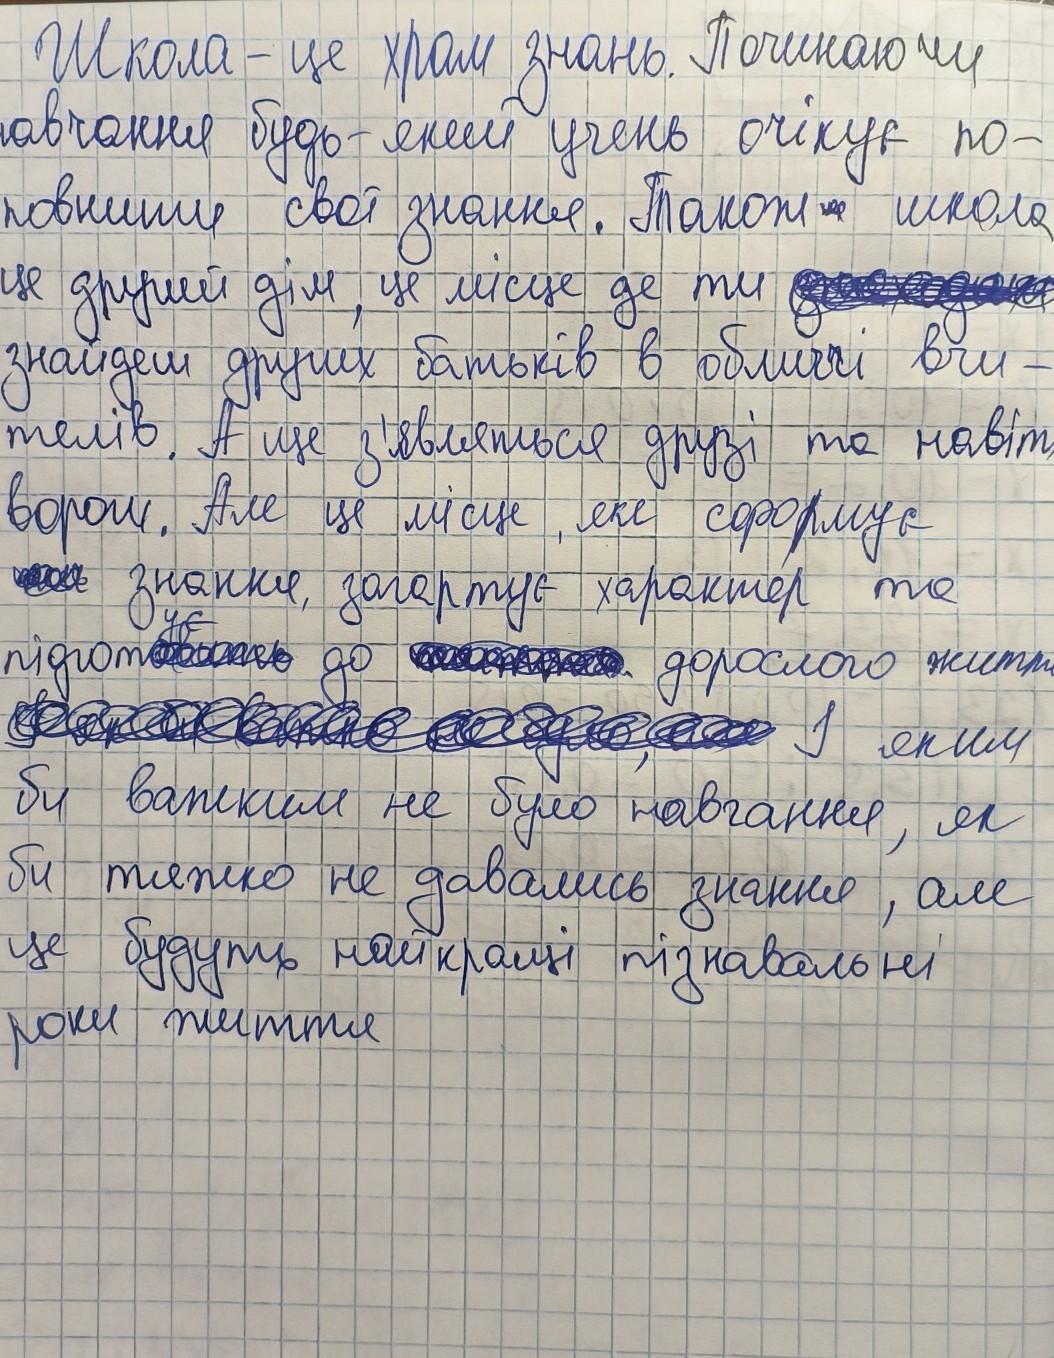 Школа - це храм знань. Починаючи
навчання будь-який учень очікує по-
повнити свої знання. Також школа
це другий дім, це місце де ти
знайдеш других батьків в обличчі вчи-
телів. А ще з'являться друзі та навіть
вороги. Але це місце, яке сформує
знання, загартує характер та
підготує до дорослого життя
І яким
би важким не було навчання, як
би тяжко не давались знання, але
це будуть найкращі пізнавальні
роки життя